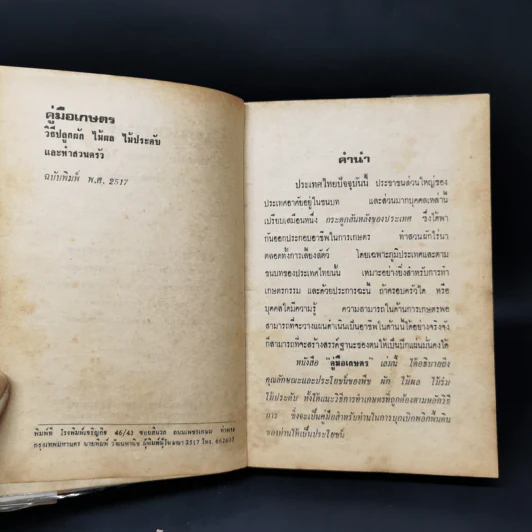 คู่มือเกษตร
วิธีปลูกผัก ไม้ผล ไม้ประดับ
และทำสวนครัว
ฉบับพิมพ์ พ.ศ. 2517
พิมพ์ที่ โรงพิมพ์เจริญกิจ 46/43 ซอย ถนนเพชรเกษม
กรุงเทพมหานคร นาย ผู้พิมพ์ผู้โฆษณา 2517 โทร.
คำนำ
ประเทศไทยปัจจุบันนี้ ประชาชนส่วนใหญ่ของ
ประเทศอาศัยอยู่ในชนบท และส่วนมากบุคคลเหล่านี้
เปรียบเสมือนหนึ่ง กระดูกสันหลังของประเทศ ซึ่งได้พา
กันออกประกอบอาชีพในการเกษตร ทำสวนผักไร่นา
ตลอดทั้งการเลี้ยงสัตว์ โดยเฉพาะภูมิประเทศและตาม
ชนบทของประเทศไทยนั้น เหมาะอย่างยิ่งสำหรับการทำ
เกษตรกรรม และด้วยประการฉะนี้ ถ้าครอบครัวใด หรือ
บุคคลใดมีความรู้ ความสามารถในด้านการเกษตรพอ
สามารถที่จะวางแผนดำเนินเป็นอาชีพในด้านนี้ได้อย่างจริงจัง
ก็สามารถที่จะสร้างสรรค์ฐานะของตนให้เป็นปึกแผ่นมั่นคงได้
หนังสือ "คู่มือเกษตร" เล่มนี้ ได้อธิบายถึง
คุณลักษณะและประโยชน์ของพืช ผัก ไม้ผล ไม้ร่ม
ไม้ประดับ ทั้งได้แนะวิธีการทำเกษตรที่ถูกต้องตามหลักวิธี
การ ซึ่งจะเป็นคู่มือสำหรับท่านในการบุกเบิกพลิกพื้นดิน
ของท่านให้เป็นประโยชน์